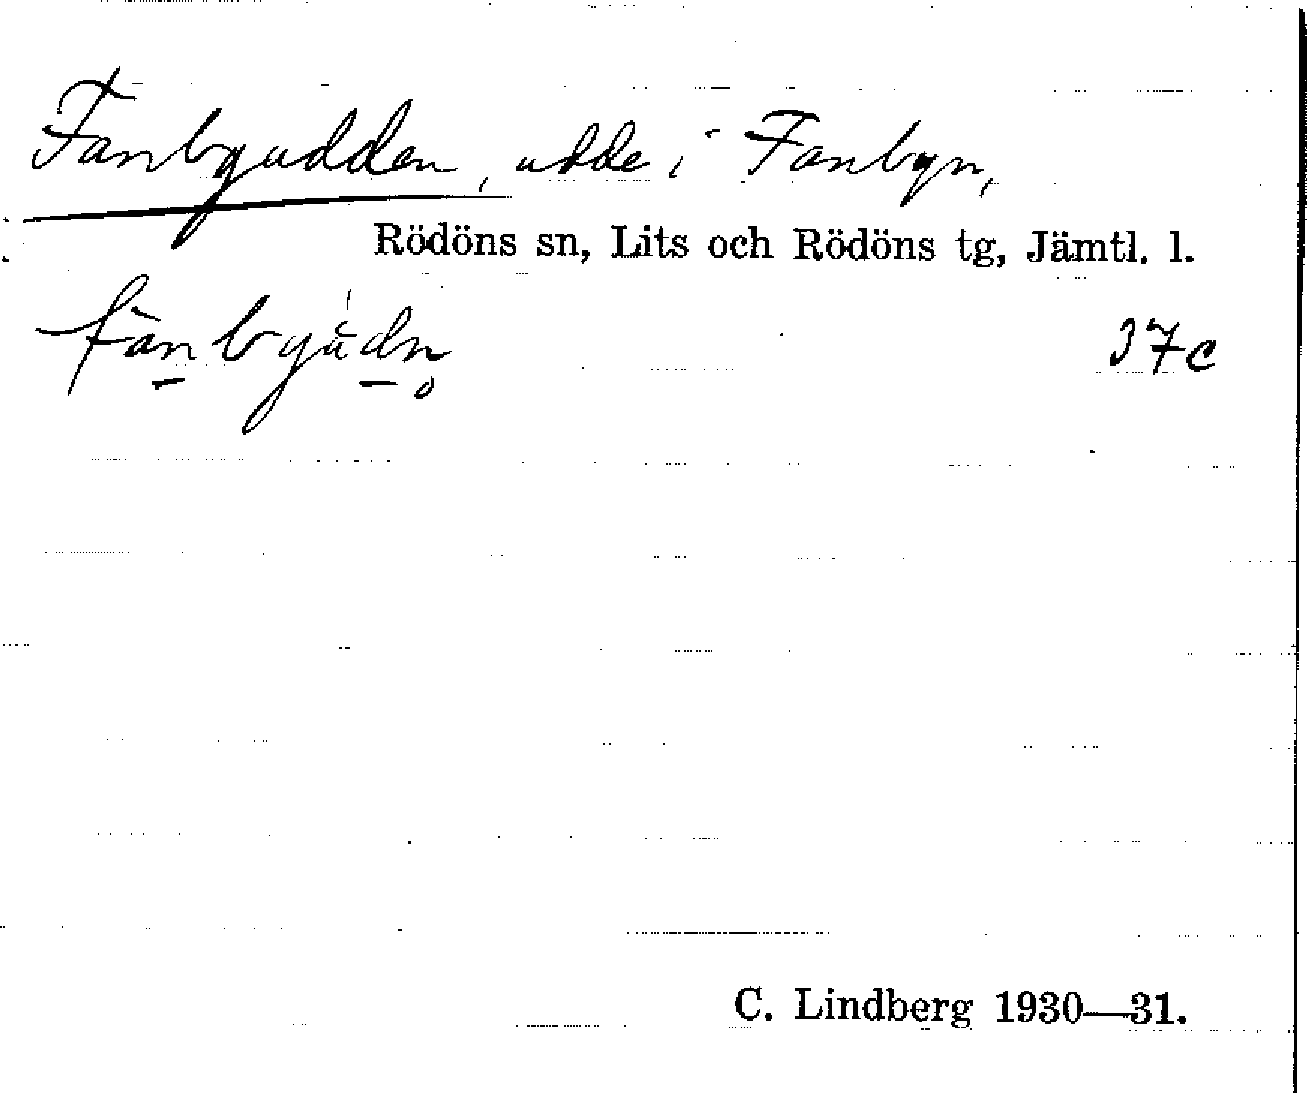 Fanbyudden, udde i Fanbyn,
Rödöns sn, Lits och Rödöns tg, Jämtl. l.
fànbyùdn̥ 37c
C. Lindberg 1930—31.